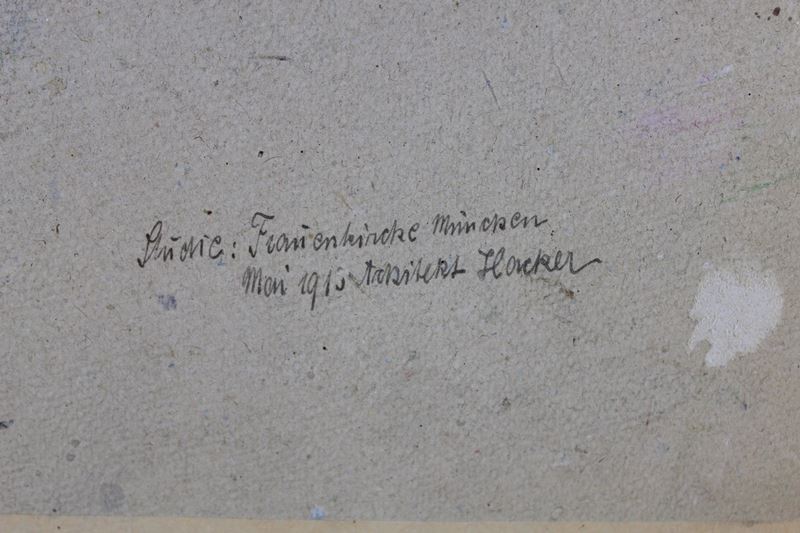 Studie: Frauenkirche München
Mai 1913 Architekt Hacker